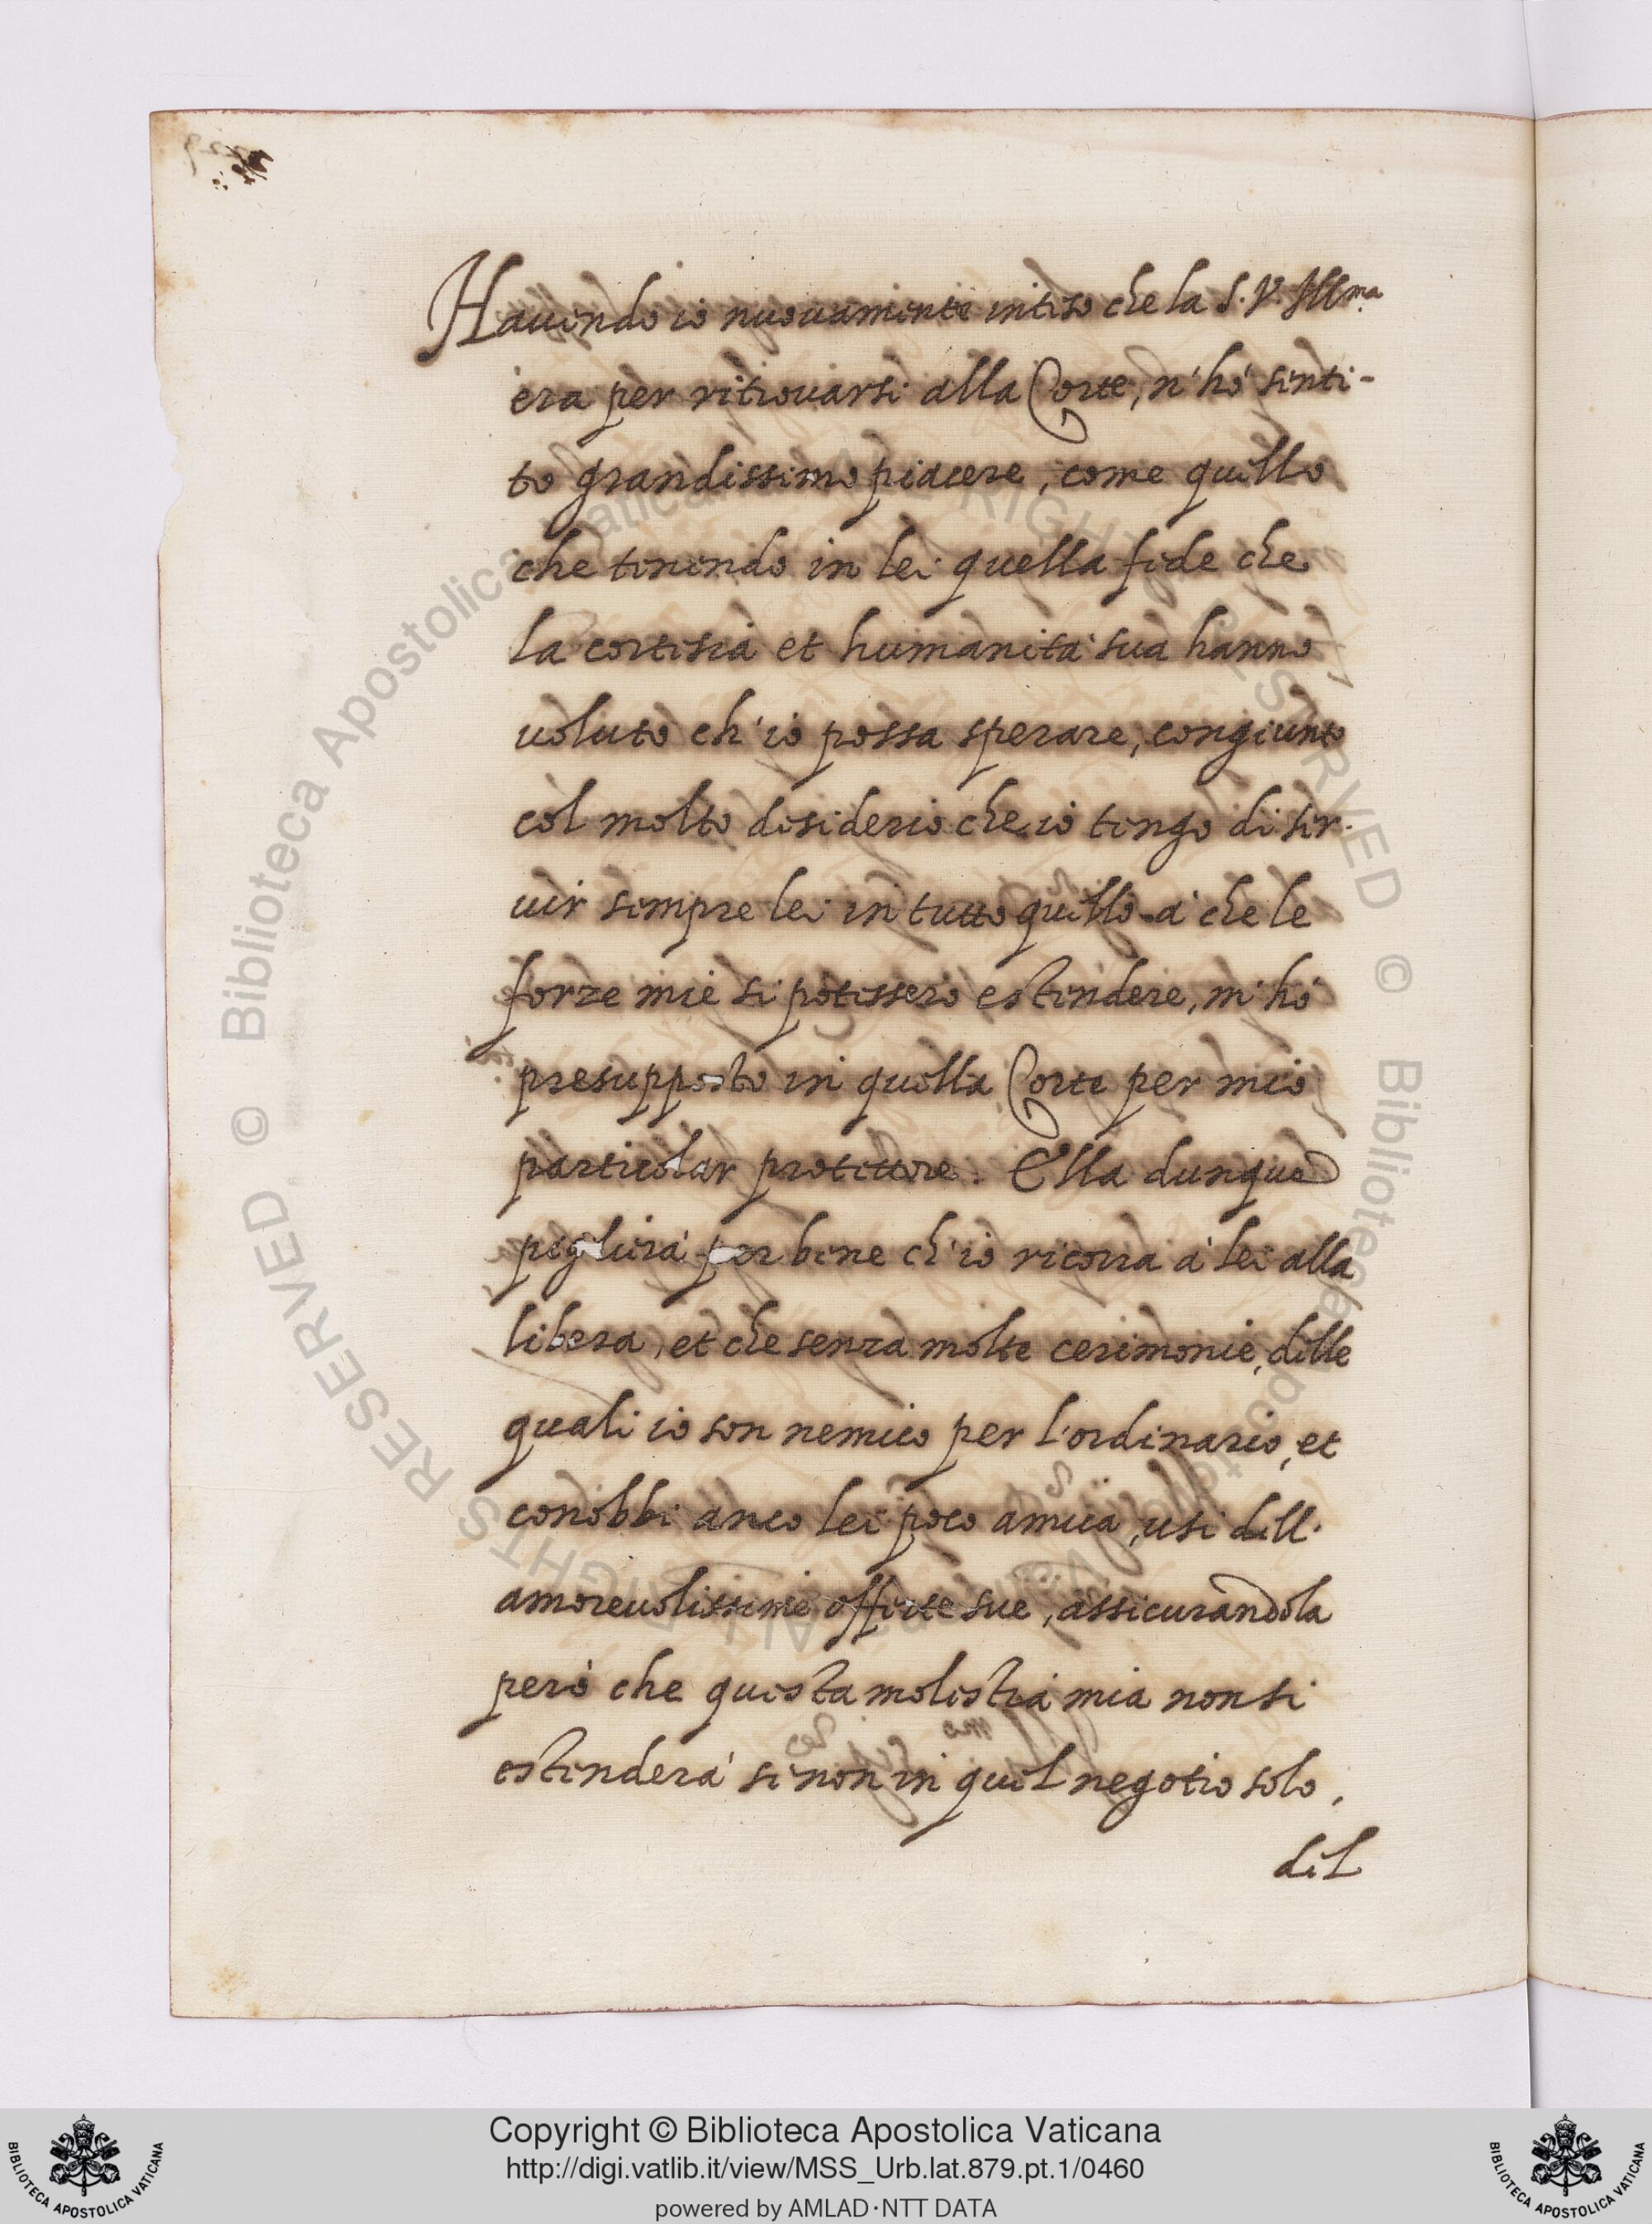 Havendo io nuovamente inteso che la S. V. Ill.ma
era per ritrovarsi alla Corte, n'hò senti-
to grandissimo piacere, come quello
che tenendo in lei quella fede che
la cortesia et humanità sua hanno
voluto ch'io possa sperare, congiunto
col molto desiderio che io tengo di ser-
vir sempre lei in tutto quello à che le
forze mie si potessero estendere, m'hò
presupposto in quella Corte per mio
particolar protettore. Ella dunque
piglierà per bene ch'io ricorra à lei alla
libera, et che senza molte cerimonie, delle
quali io son nemico per l'ordinario, et
conobbi anco lei poco amica, usi dell'
amorevolissime offerte sue, assicurandola
però che questa molestia mia non si
estenderà se non in quel negotio solo,
del
© Biblioteca Apostolica Vaticana ALL RIGHTS RESERVED © Biblioteca Apostolica Vaticana ALL RIGHTS RESERVED
BIBLIOTECA APOSTOLICA VATICANA
Copyright © Biblioteca Apostolica Vaticana
http://digi.vatlib.it/view/MSS_Urb.lat.879.pt.1/0460
powered by AMLAD·NTT DATA
BIBLIOTECA APOSTOLICA VATICANA